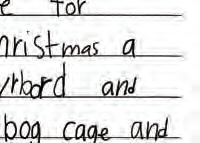 e for
hristmas a
yrbord and
bog cage and